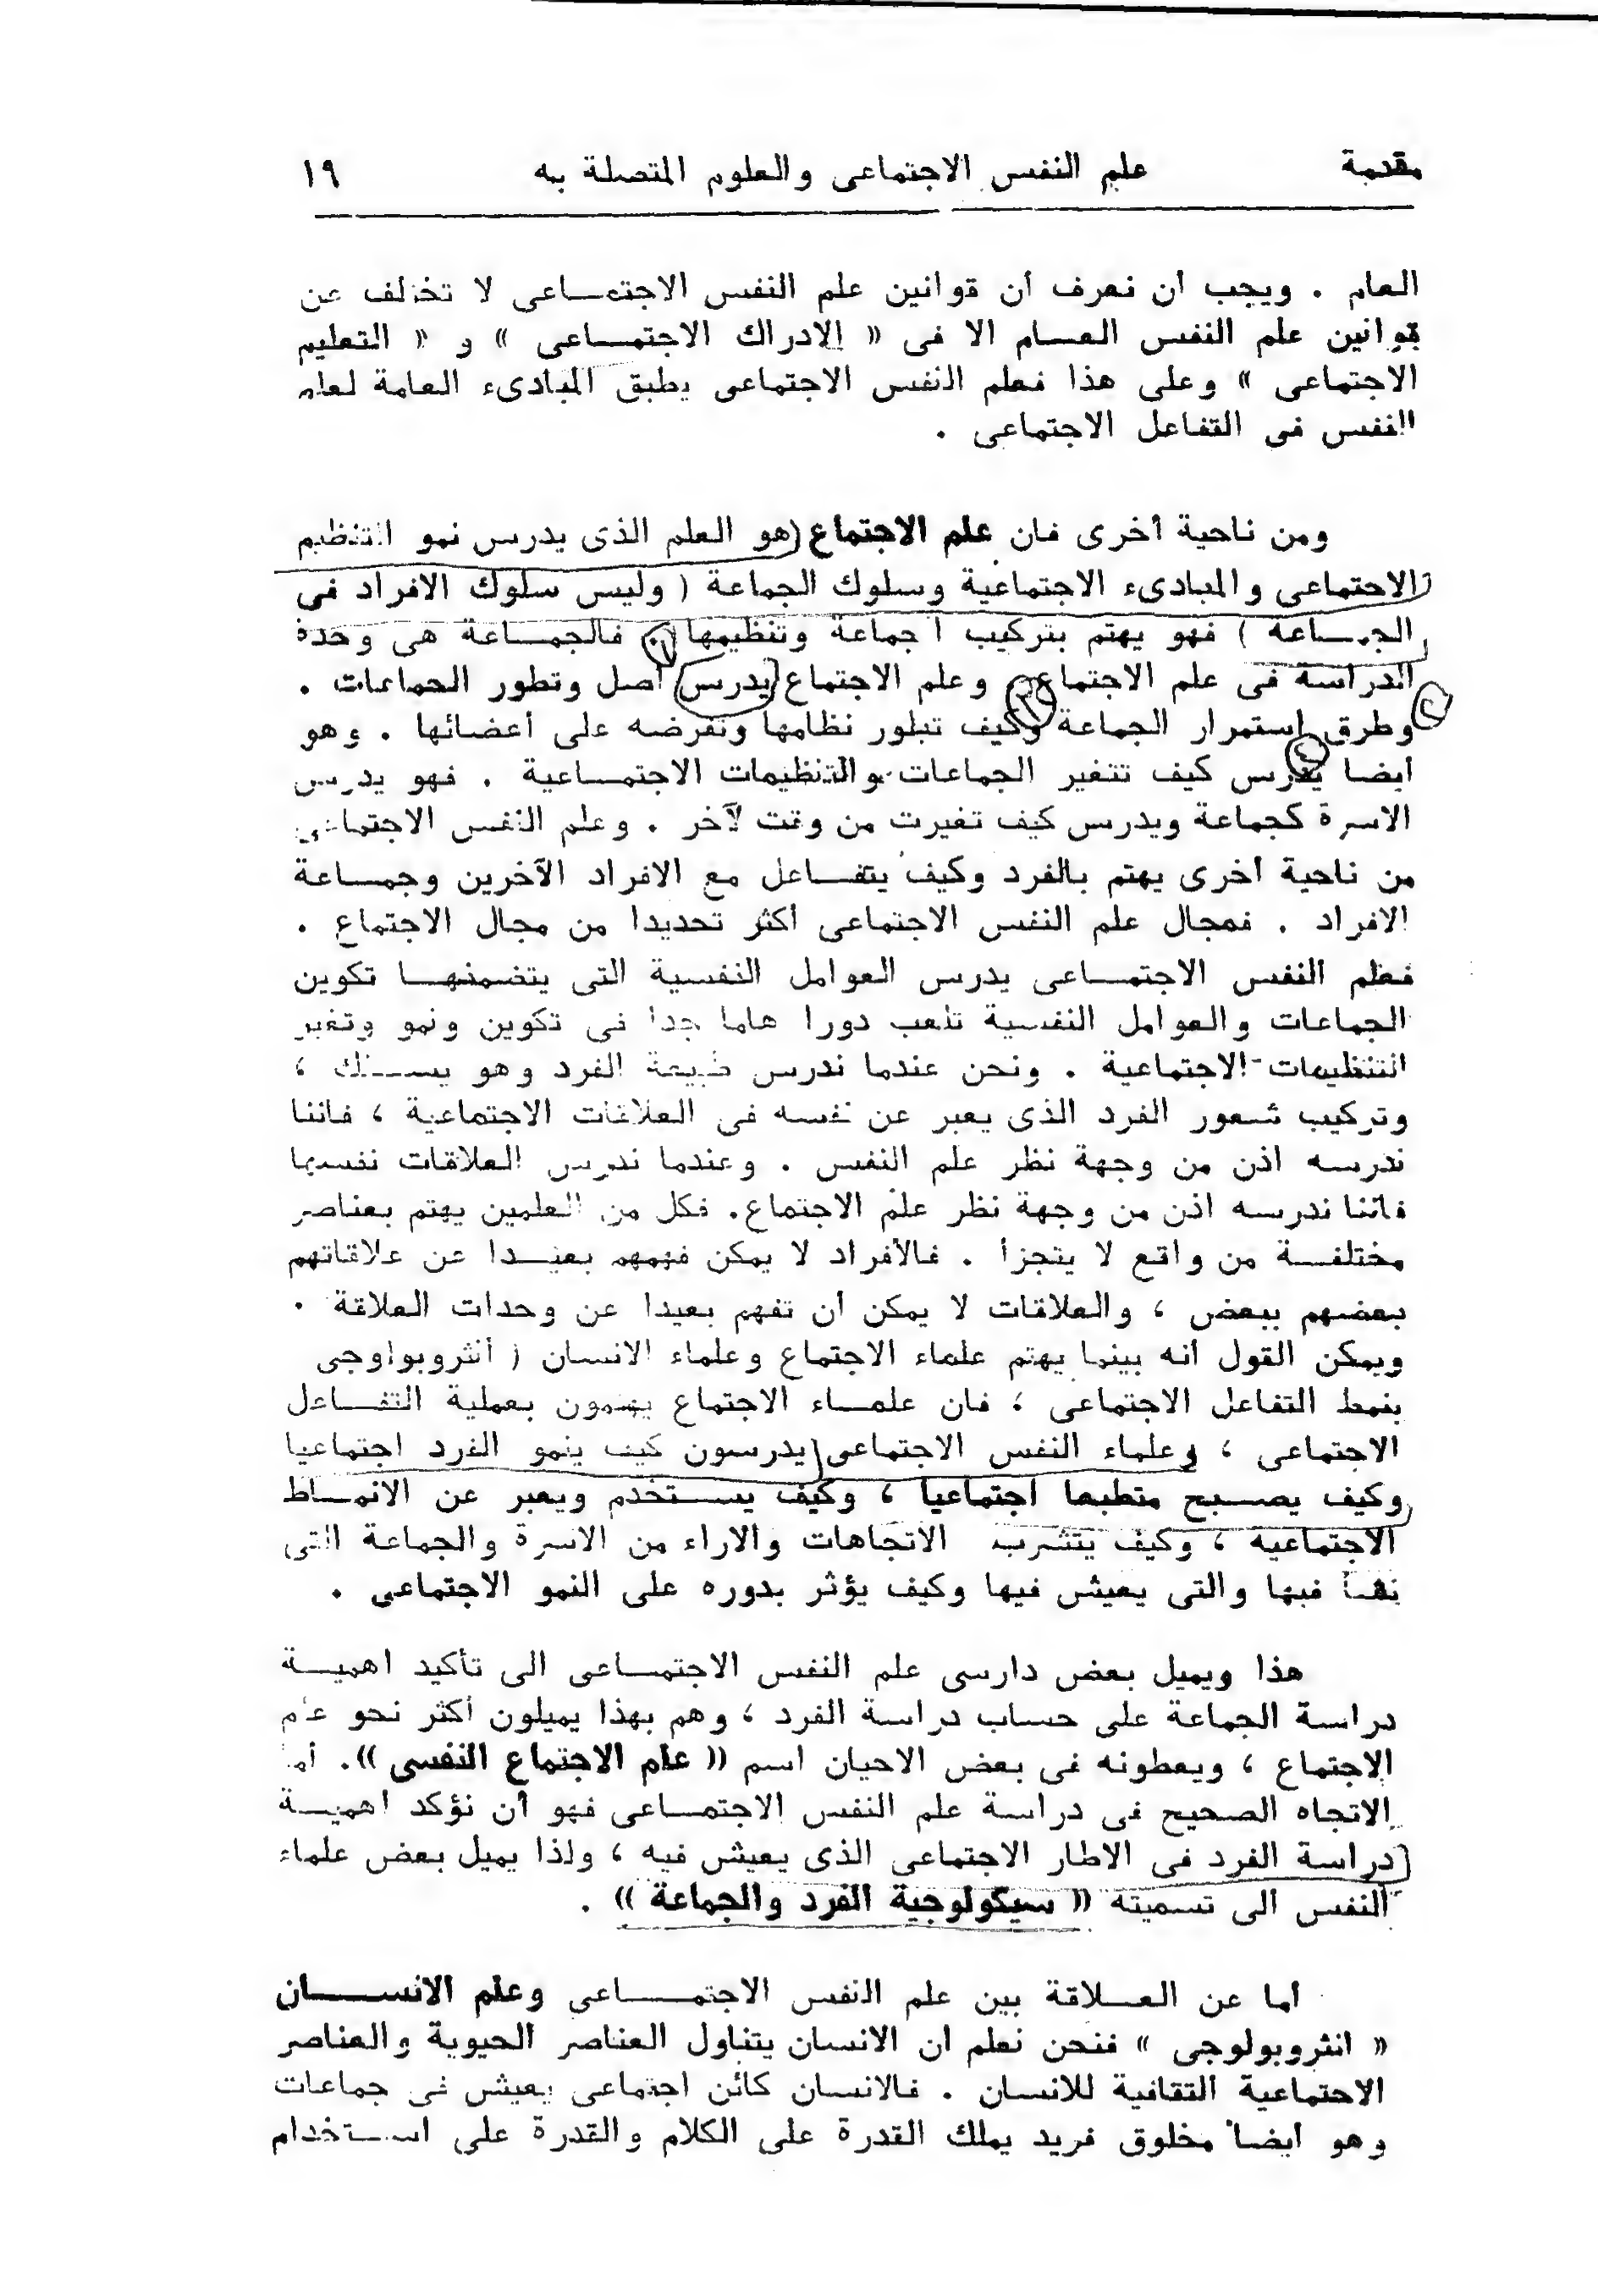 مقدمة علم النفس الاجتماعى والعلوم المتصلة به ١٩
العام . ويجب أن نعرف أن قوانين علم النفس الاجتمـاعى لا تختلف عن
قوانين علم النفس العـام الا فى « الادراك الاجتمـاعى » و « التعليم
الاجتماعى » وعلى هذا فعلم النفس الاجتماعى يطبق المبادىء العامة لعلم
النفس فى التفاعل الاجتماعى .
ومن ناحية أخرى فان علم الاجتماع (هو العلم الذى يدرس نمو التنظيم
الاجتماعى والمبادىء الاجتماعية وسلوك الجماعة ( وليس سلوك الافراد فى
الجمـاعة ) فهو يهتم بتركيب الجماعة وتنظيمها . فالجمـاعة هى وحدة
الدراسة فى علم الاجتماع وعلم الاجتماع يدرس أصل وتطور الجماعات .
وطرق استمرار الجماعة وكيف تبلور نظامها وتفرضه على أعضائها . وهو
أيضا يدرس كيف تتغير الجماعات والتنظيمات الاجتمـاعية . فهو يدرس
الاسرة كجماعة ويدرس كيف تغيرت من وقت لآخر . وعلم النفس الاجتماعى
من ناحية أخرى يهتم بالفرد وكيف يتفـاعل مع الافراد الآخرين وجمـاعة
الافراد . فمجال علم النفس الاجتماعى أكثر تحديدا من مجال الاجتماع .
فعلم النفس الاجتمـاعى يدرس العوامل النفسية التى يتضمنهـا تكوين
الجماعات والعوامل النفسية تلعب دورا هاما جدا فى تكوين ونمو وتغير
التنظيمات الاجتماعية . ونحن عندما ندرس طبيعة الفرد وهو يسـلك ،
وتركيب شعور الفرد الذى يعبر عن نفسه فى العلاقات الاجتماعية ، فاننا
ندرسه اذن من وجهة نظر علم النفس . وعندما ندرس العلاقات نفسها
فاننا ندرسه اذن من وجهة نظر علم الاجتماع. فكل من العلمين يهتم بعناصر
مختلفـة من واقع لا يتجزأ . فالأفراد لا يمكن فهمهم بعيـدا عن علاقاتهم
بعضهم ببعض ، والعلاقات لا يمكن أن تفهم بعيدا عن وحدات العلاقة .
ويمكن القول أنه بينما يهتم علماء الاجتماع وعلماء الانسان ( أنثروبولوجى
بنمط التفاعل الاجتماعى ، فان علمـاء الاجتماع يهتمون بعملية التفـاعل
الاجتماعى ، وعلماء النفس الاجتماعى (يدرسون كيف ينمو الفرد اجتماعيا
وكيف يصـبح متطبعا اجتماعيا ، وكيف يسـتخدم ويعبر عن الانمـاط
الاجتماعية ، وكيف يتشرب الاتجاهات والاراء من الاسرة والجماعة التى
نشـأ فيها والتى يعيش فيها وكيف يؤثر بدوره على النمو الاجتماعى .
هذا ويميل بعض دارسى علم النفس الاجتمـاعى الى تأكيد اهميـة
دراسة الجماعة على حساب دراسة الفرد ، وهم بهذا يميلون أكثر نحو علم
الاجتماع ، ويعطونه فى بعض الاحيان اسم « علم الاجتماع النفسى ». أما
الاتجاه الصحيح فى دراسة علم النفس الاجتمـاعى فهو أن نؤكد أهميـة
دراسة الفرد فى الاطار الاجتماعى الذى يعيش فيه ، ولذا يميل بعض علماء
النفس الى تسميته « سيكولوجية الفرد والجماعة » .
أما عن العـلاقة بين علم النفس الاجتمـاعى وعلم الانسـان
« انثروبولوجى » فنحن نعلم ان الانسان يتناول العناصر الحيوية والعناصر
الاجتماعية الثقافية للانسان . فالانسان كائن اجتماعى يعيش فى جماعات
وهو أيضا مخلوق فريد يملك القدرة على الكلام والقدرة على اسـتخدام